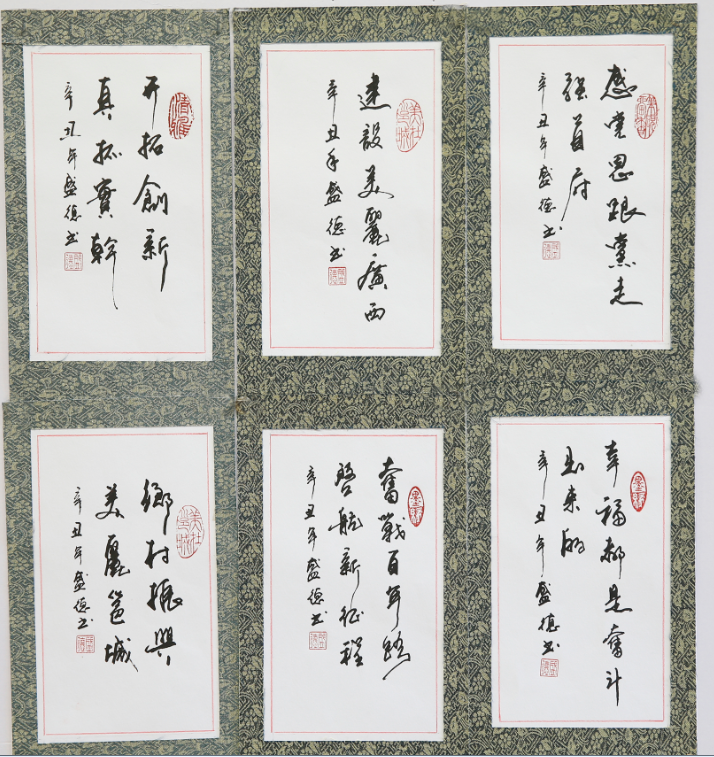 感党恩跟黨走
强首府
辛丑年盛德书
建設美麗廣西
辛丑年盛德书
开拓創新
真抓實幹
辛丑年盛德书
幸福都是奮斗
出来的
辛丑年盛德书
奮戰百年路
啓航新征程
辛丑年盛德书
鄉村振興
美麗邕城
辛丑年盛德书